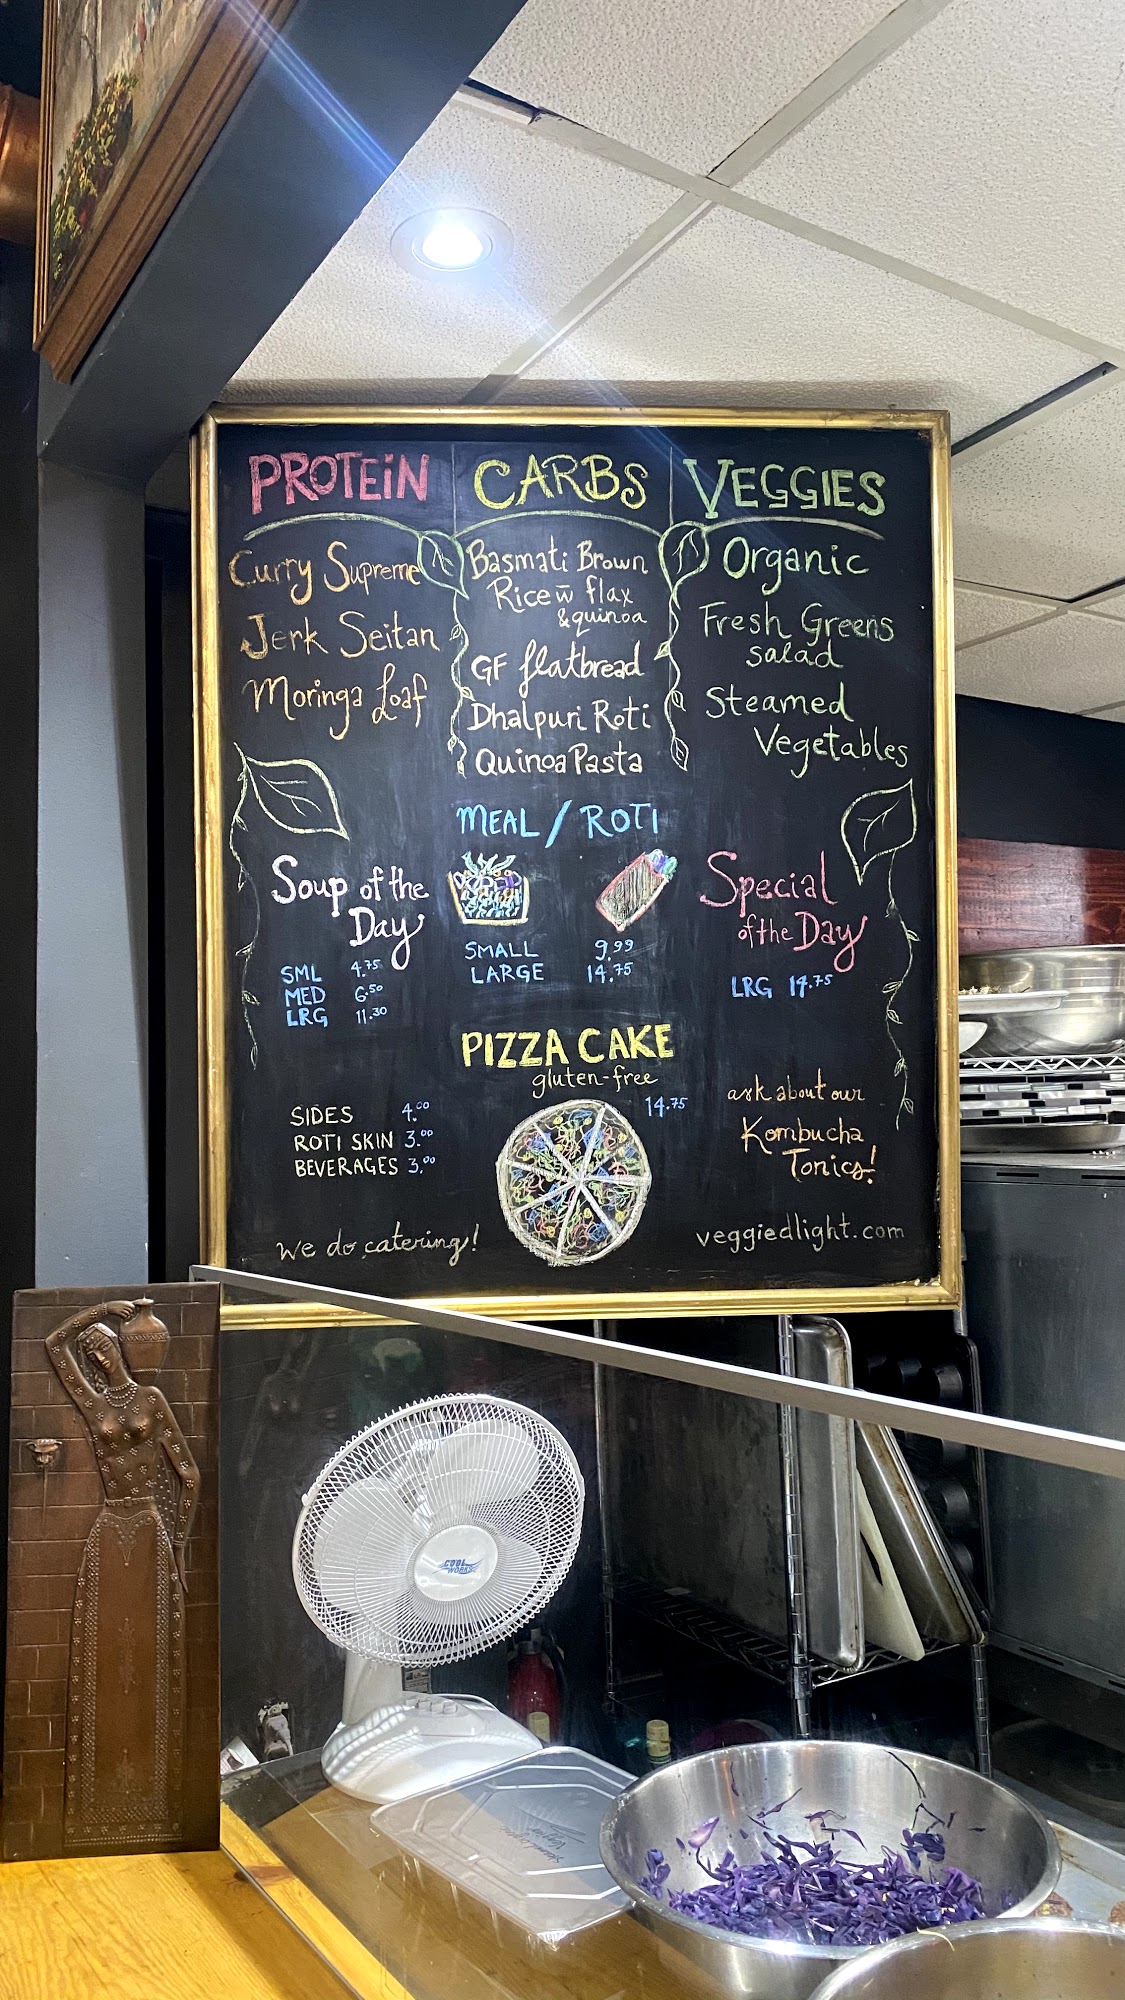 PROTEiN
Curry Supreme
Jerk Seitan
Moringa Loaf
CARBS
Basmati Brown
Rice w̄ flax
& quinoa
GF flatbread
Dhalpuri Roti
Quinoa Pasta
VEGGIES
Organic
Fresh Greens
salad
Steamed
Vegetables
MEAL / ROTI
SMALL 9.99
LARGE 14.75
Soup of the
Day
SML 4.75
MED 6.50
LRG 11.30
Special
of the Day
LRG 14.75
PIZZA CAKE
gluten-free
14.75
SIDES 4.00
ROTI SKIN 3.00
BEVERAGES 3.00
ask about our
Kombucha
Tonics!
We do catering!
veggiedlight.com
COOL
WORKS